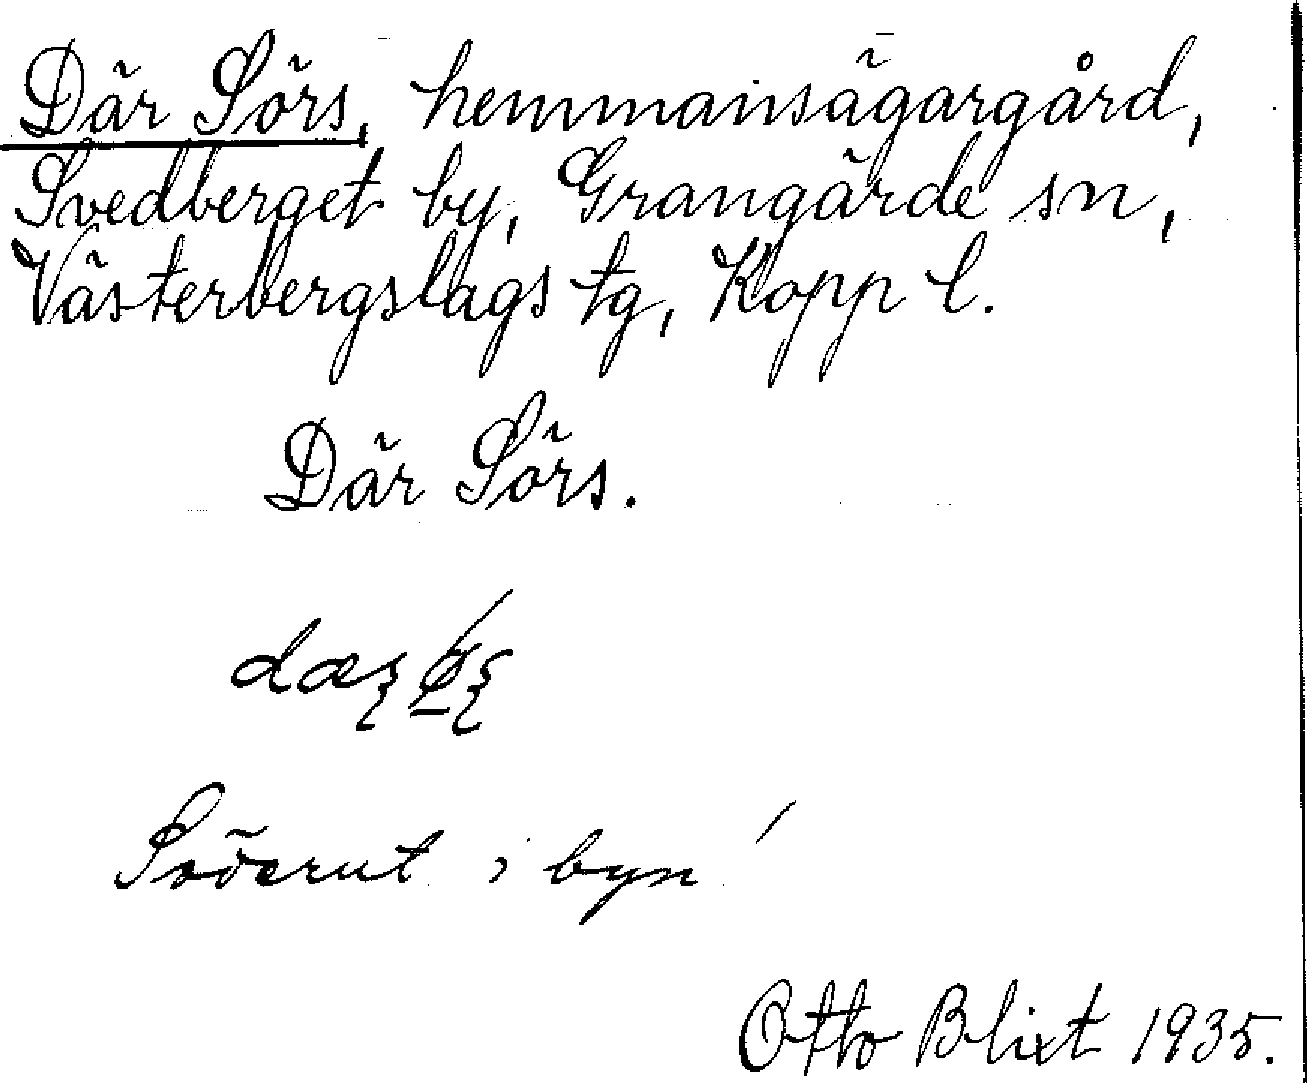 Där Sörs, hemmansägargård,
Svedberget by, Grangärde sn,
Västerbergslags tg, Kopp l.
Där Sörs.
Söderut i byn
Otto Blixt 1935.